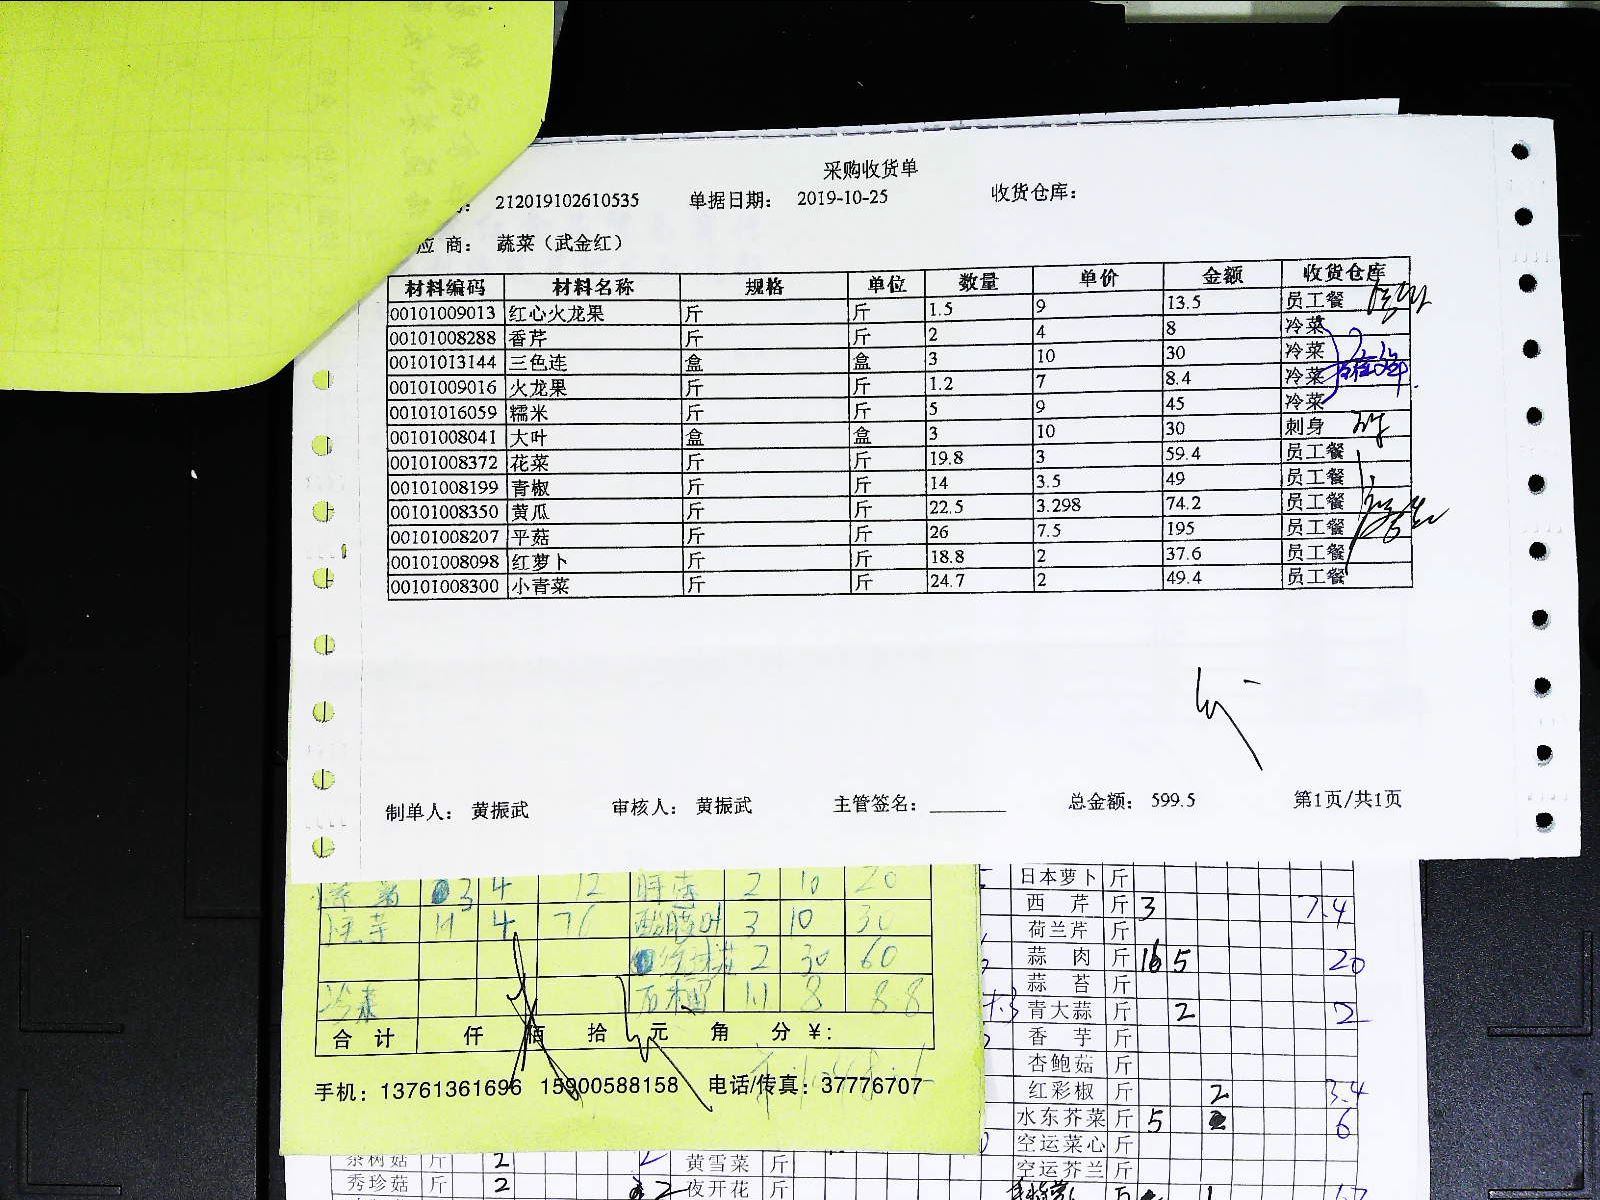 采购收货单
212019102610535 单据日期： 2019-10-25 收货仓库：
应 商： 蔬菜（武金红）
材料编码 材料名称 规格 单位 数量 单价 金额 收货仓库
00101009013 红心火龙果 斤 斤 1.5 9 13.5 员工餐
00101008288 香芹 斤 斤 2 4 8 冷菜
00101013144 三色连 盒 盒 3 10 30 冷菜
00101009016 火龙果 斤 斤 1.2 7 8.4 冷菜
00101016059 糯米 斤 斤 5 9 45 冷菜
00101008041 大叶 盒 盒 3 10 30 刺身
00101008372 花菜 斤 斤 19.8 3 59.4 员工餐
00101008199 青椒 斤 斤 14 3.5 49 员工餐
00101008350 黄瓜 斤 斤 22.5 3.298 74.2 员工餐
00101008207 平菇 斤 斤 26 7.5 195 员工餐
00101008098 红萝卜 斤 斤 18.8 2 37.6 员工餐
00101008300 小青菜 斤 斤 24.7 2 49.4 员工餐
制单人： 黄振武 审核人： 黄振武 主管签名： 总金额： 599.5 第1页/共1页
3 4 12 2 10 20
4 76 3 10 30
2 30 60
冷菜 石榴 1.1 8 8.8
合 计 仟 佰 拾 元 角 分 ¥:
手机：13761361696 15900588158 电话/传真：37776707
日本萝卜 斤
西 芹 斤 3 7.4
荷兰芹 斤
蒜 肉 斤 16 5 20
蒜 苔 斤
青大蒜 斤 2 2
香 芋 斤
杏鲍菇 斤
红彩椒 斤 2 3.4
水东芥菜 斤 5 6
空运菜心 斤
空运芥兰 斤
茶树菇 斤 2 2 黄雪菜 斤
秀珍菇 斤 2 2 夜开花 斤